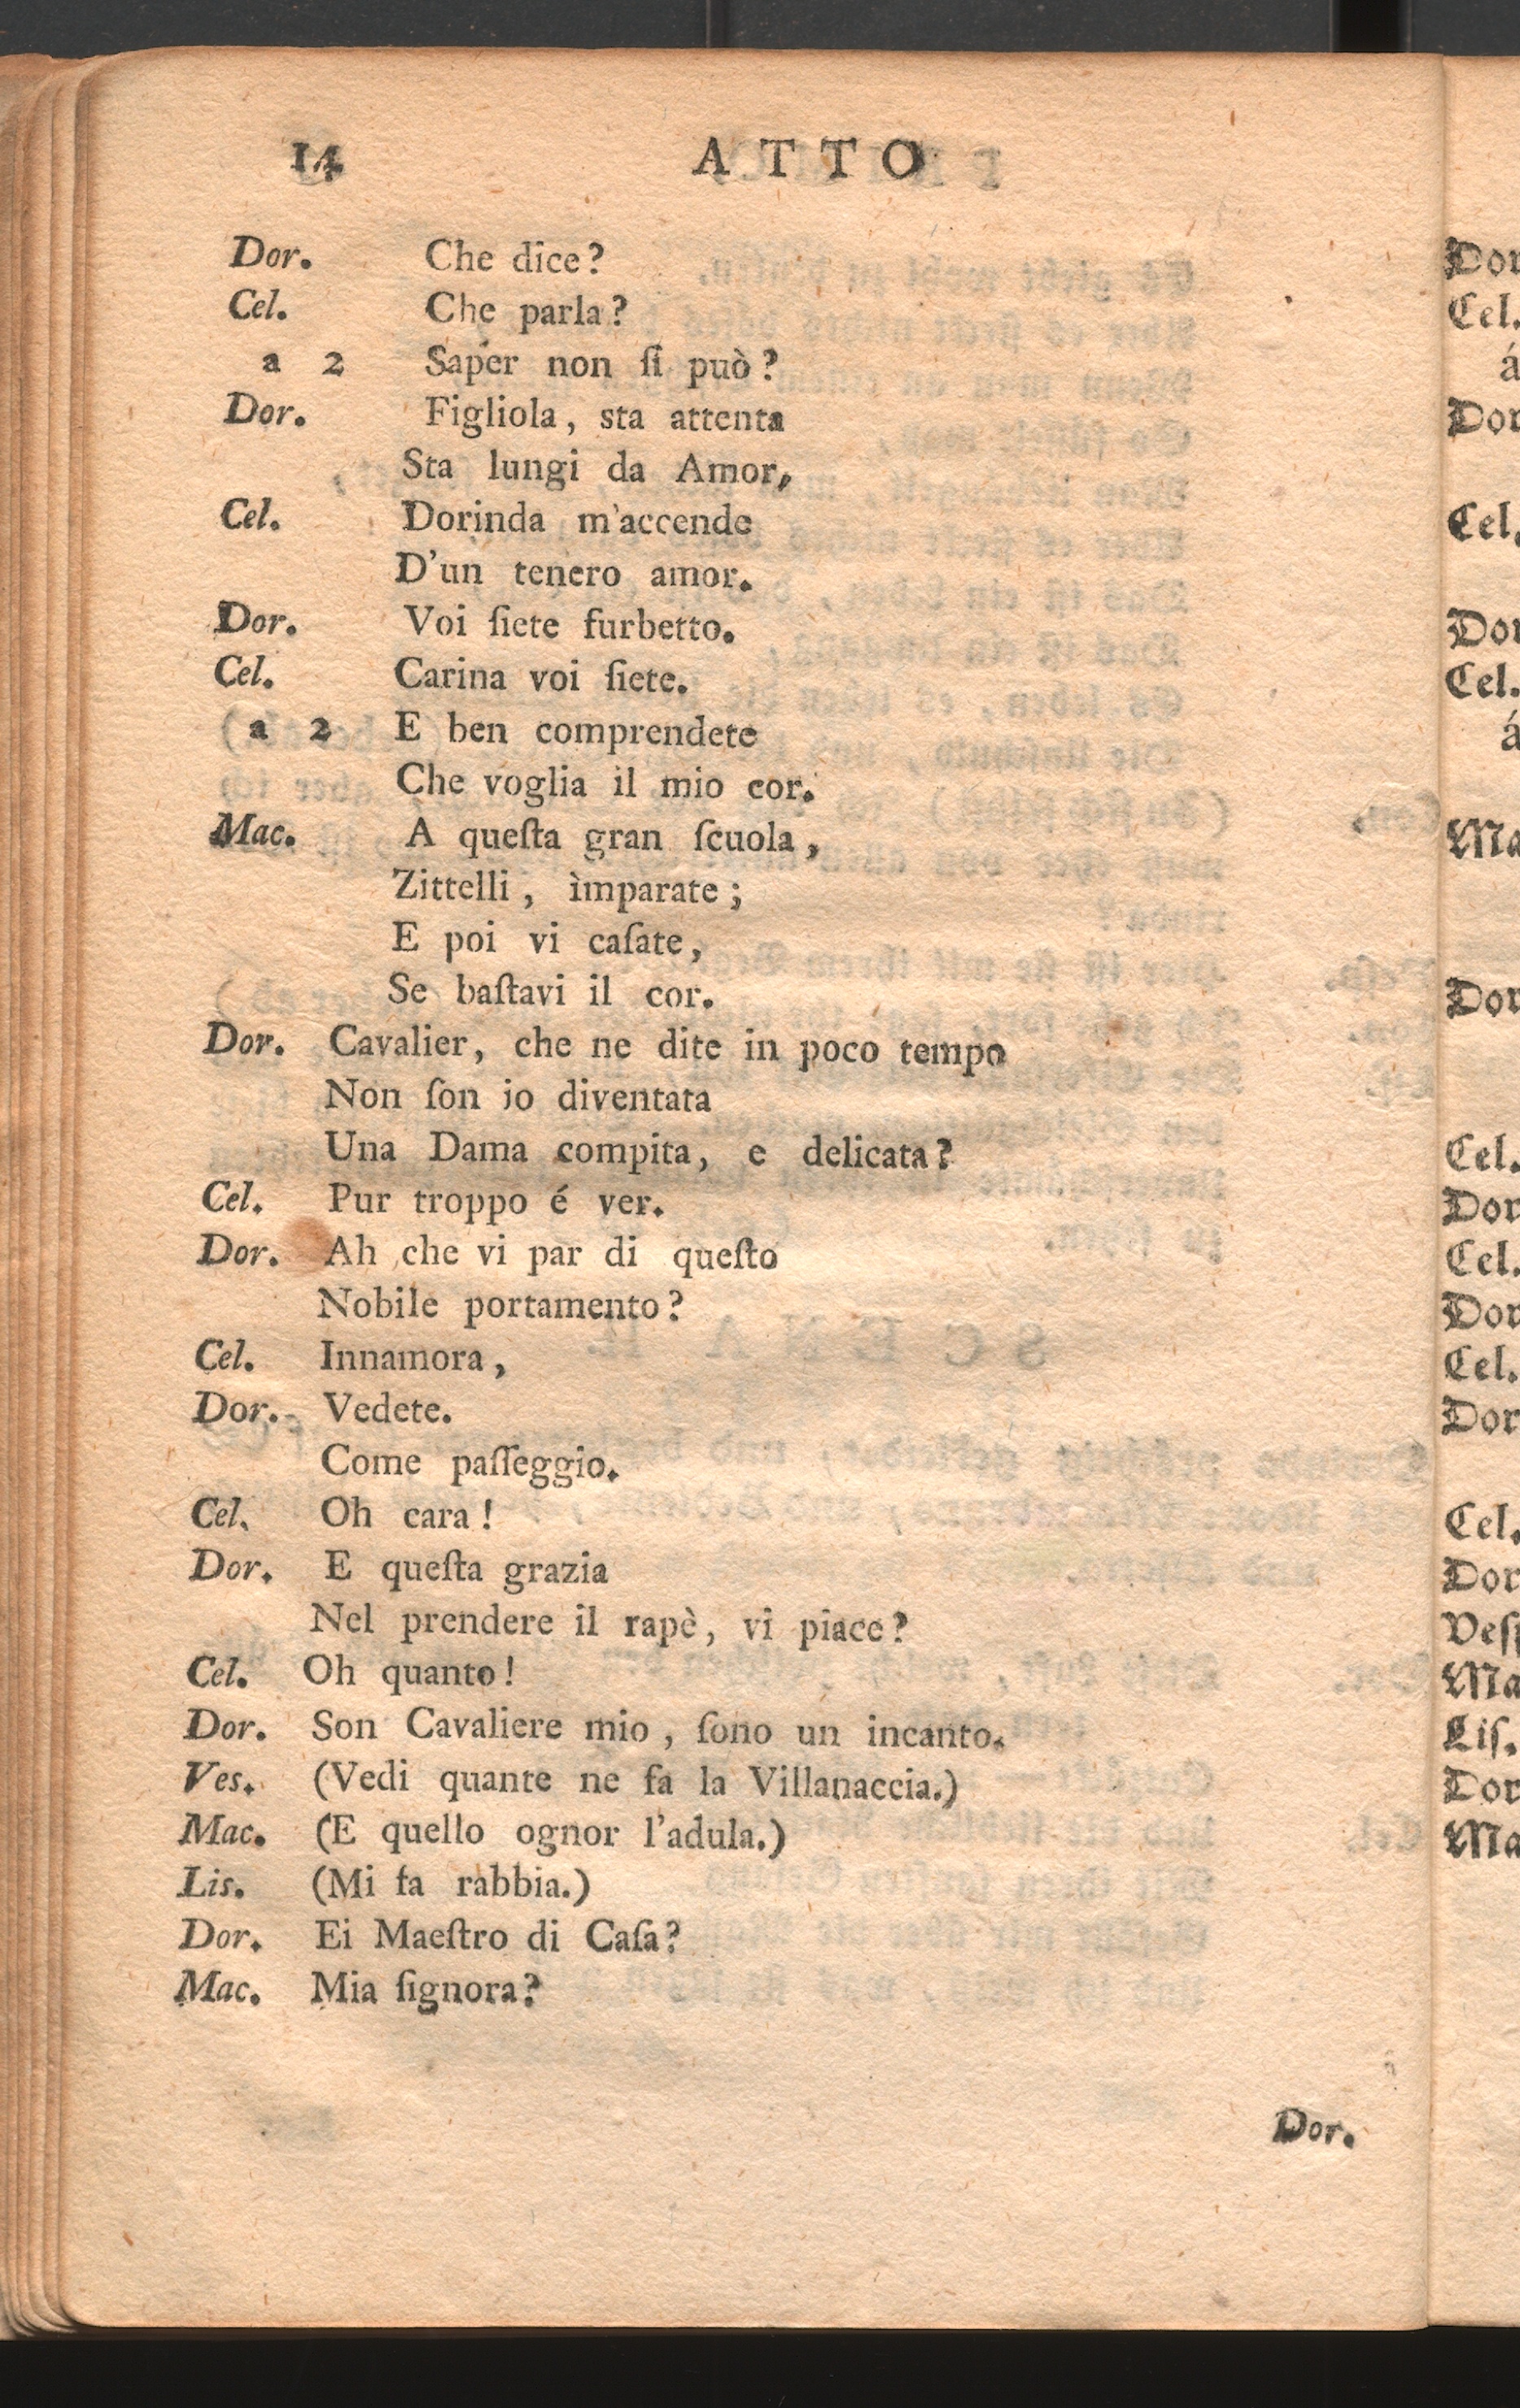 14 ATTO
Dor. Che dice?
Cel. Che parla?
a 2 Saper non ſi può?
Dor. Figliola, sta attenta
Sta lungi da Amor,
Cel. Dorinda m'accende
D'un tenero amor.
Dor. Voi ſiete furbetto.
Cel. Carina voi ſiete.
a 2 E ben comprendete
Che voglia il mio cor.
Mac. A queſta gran ſcuola,
Zittelli, ìmparate;
E poi vi caſate,
Se baſtavi il cor.
Dor. Cavalier, che ne dite in poco tempo
Non ſon io diventata
Una Dama compita, e delicata?
Cel. Pur troppo é ver.
Dor. Ah che vi par di queſto
Nobile portamento?
Cel. Innamora,
Dor. Vedete.
Come paſſeggio.
Cel. Oh cara!
Dor. E queſta grazia
Nel prendere il rapè, vi piace?
Cel. Oh quanto!
Dor. Son Cavaliere mio, ſono un incanto.
Ves. (Vedi quante ne fa la Villanaccia.)
Mac. (E quello ognor l'adula.)
Lis. (Mi fa rabbia.)
Dor. Ei Maeſtro di Caſa?
Mac. Mia ſignora?
Dor.